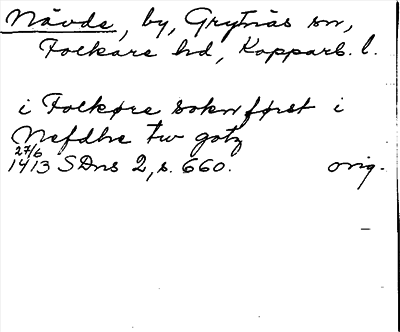 Nävde, by, Grytnäs sn,
Folkare hd, Kopparb. l.
i Folkøre soknførst i
Nefdhe tw gotz
27/6
1413 SDns 2, s. 660. orig.